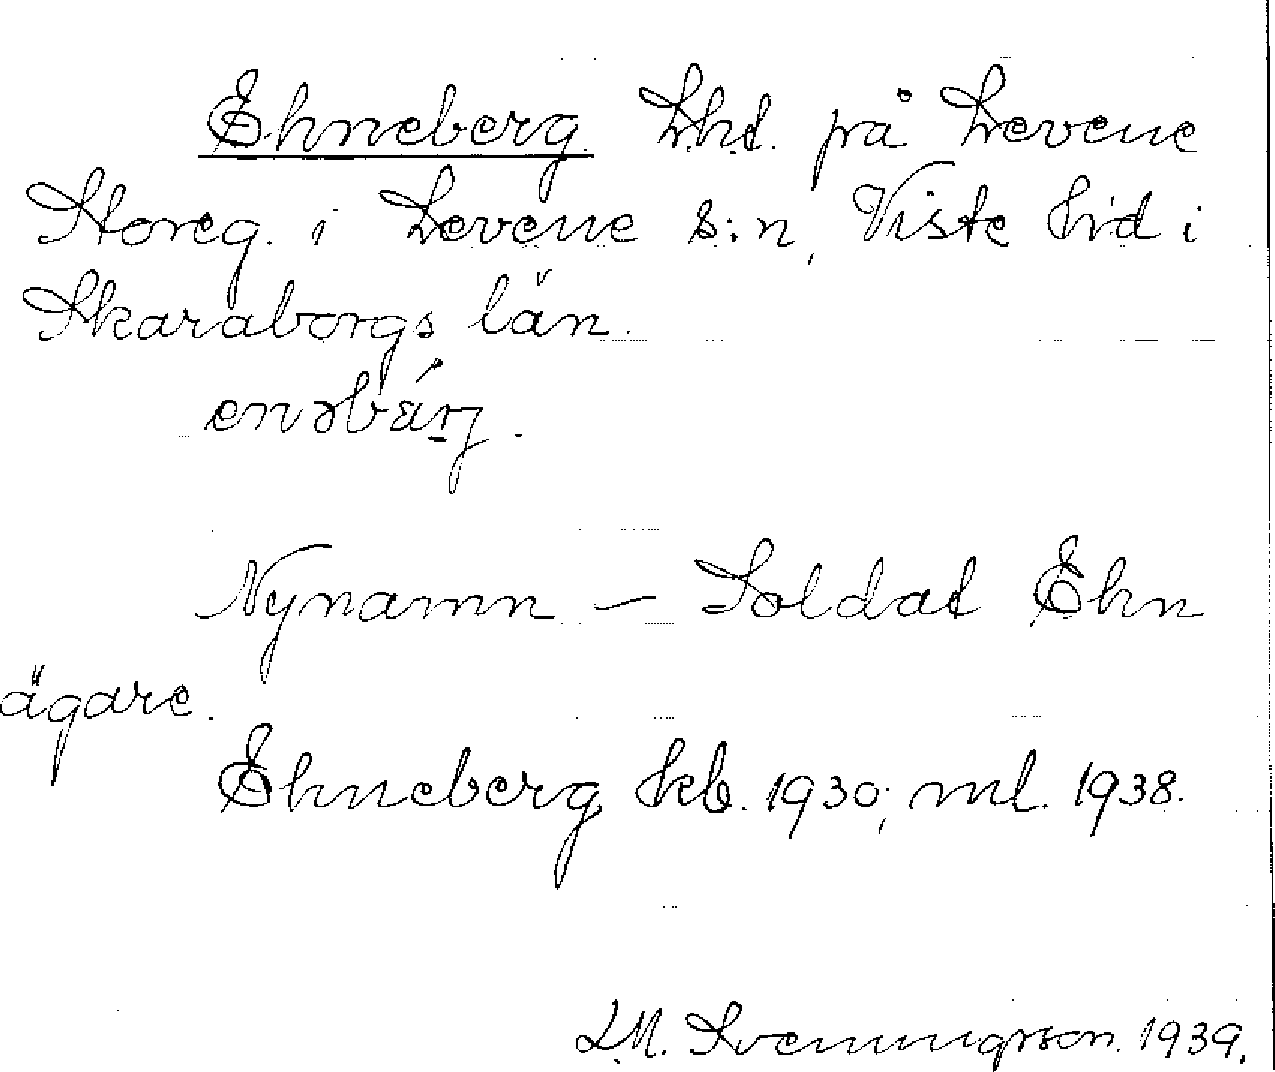 Ehneberg Lhd. på Levene
Storeg. i Levene s:n, Viste hd i
Skaraborgs län.
Nynamn — Soldat Ehn
ägare.
Ehneberg kb. 1930; ml. 1938.
L.M. Svenungsson. 1939.